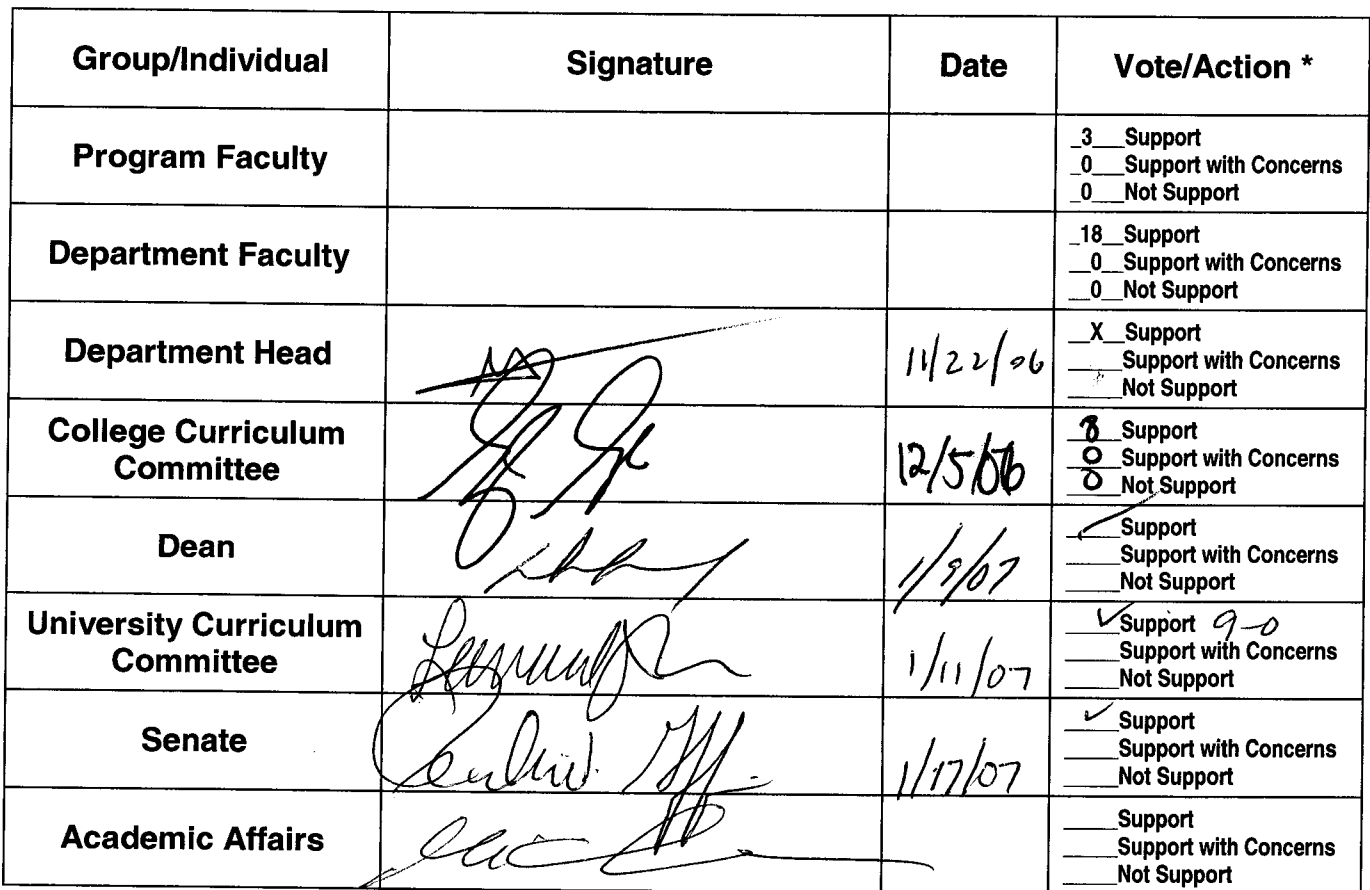 Group/Individual Signature Date Vote/Action *
Program Faculty
_3___Support
_0___Support with Concerns
_0___Not Support
Department Faculty
_18__Support
__0__Support with Concerns
__0__Not Support
Department Head
11/22/06
__X__Support
_____Support with Concerns
_____Not Support
College Curriculum
Committee
12/5/06
8 Support
0 Support with Concerns
0 Not Support
Dean
1/9/07
_____Support
_____Support with Concerns
_____Not Support
University Curriculum
Committee
1/11/07
✓ Support 9-0
_____Support with Concerns
_____Not Support
Senate
1/17/07
✓ Support
_____Support with Concerns
_____Not Support
Academic Affairs
_____Support
_____Support with Concerns
_____Not Support